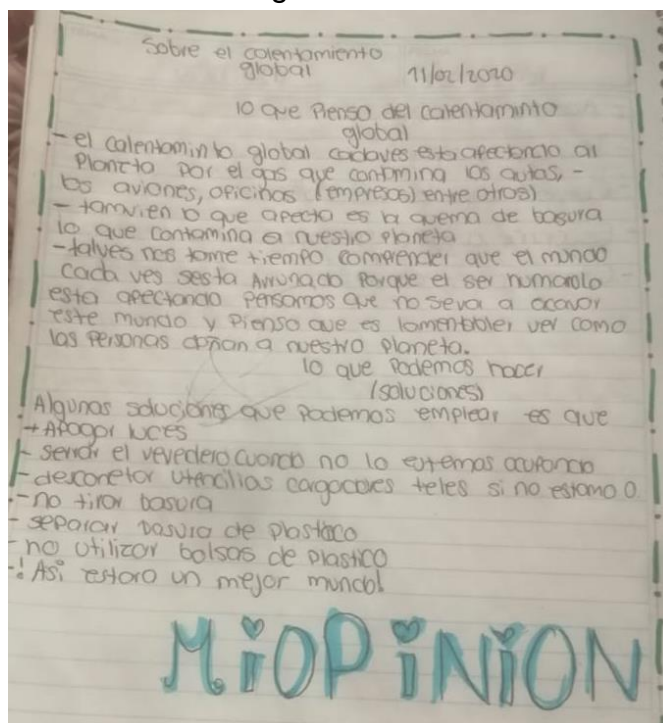 Sobre el calentamiento
global 11/02/2020
lo que Pienso del calentaminto
global
- el calentaminto global cadaves esta afectando al
Planeta Por el gas que contmina los autas, -
los aviones, oficinas (empresas) entre otros)
- tamvien lo que afecta es la quema de basura
lo que contamina a nuestro planeta
- talves nos tome tiempo comprender que el mundo
cada ves sesta Arrunado Porque el ser humanolo
esta afectando Pensamos que no seva a acavar
este mundo y Pienso que es lamentbler ver como
las Personas dañan a nuestro Planeta.
lo que Podemos hacer
(soluciones)
Algunas soluciones que Podemos emplear es que
+ APagar luces
- serrar el vevedero cuando no lo estemos ocupando
- desconetar utencilias cargadores teles si no estamo O
- no tirar basura
- separar basura de Plastico
- no utilizar bolsas de Plastico
- ! Así estaro un mejor mundo!
MiOPiNiON